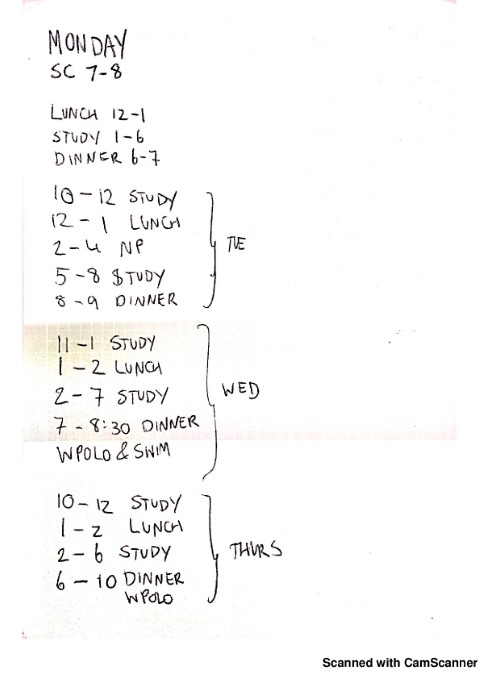 MONDAY
SC 7-8
LUNCH 12-1
STUDY 1-6
DINNER 6-7
10-12 STUDY
12-1 LUNCH
2-4 NP
5-8 STUDY
8-9 DINNER
TUE
11-1 STUDY
1-2 LUNCH
2-7 STUDY
7-8:30 DINNER
WPOLO & SWIM
WED
10-12 STUDY
1-2 LUNCH
2-6 STUDY
6-10 DINNER
WPOLO
THURS
Scanned with CamScanner